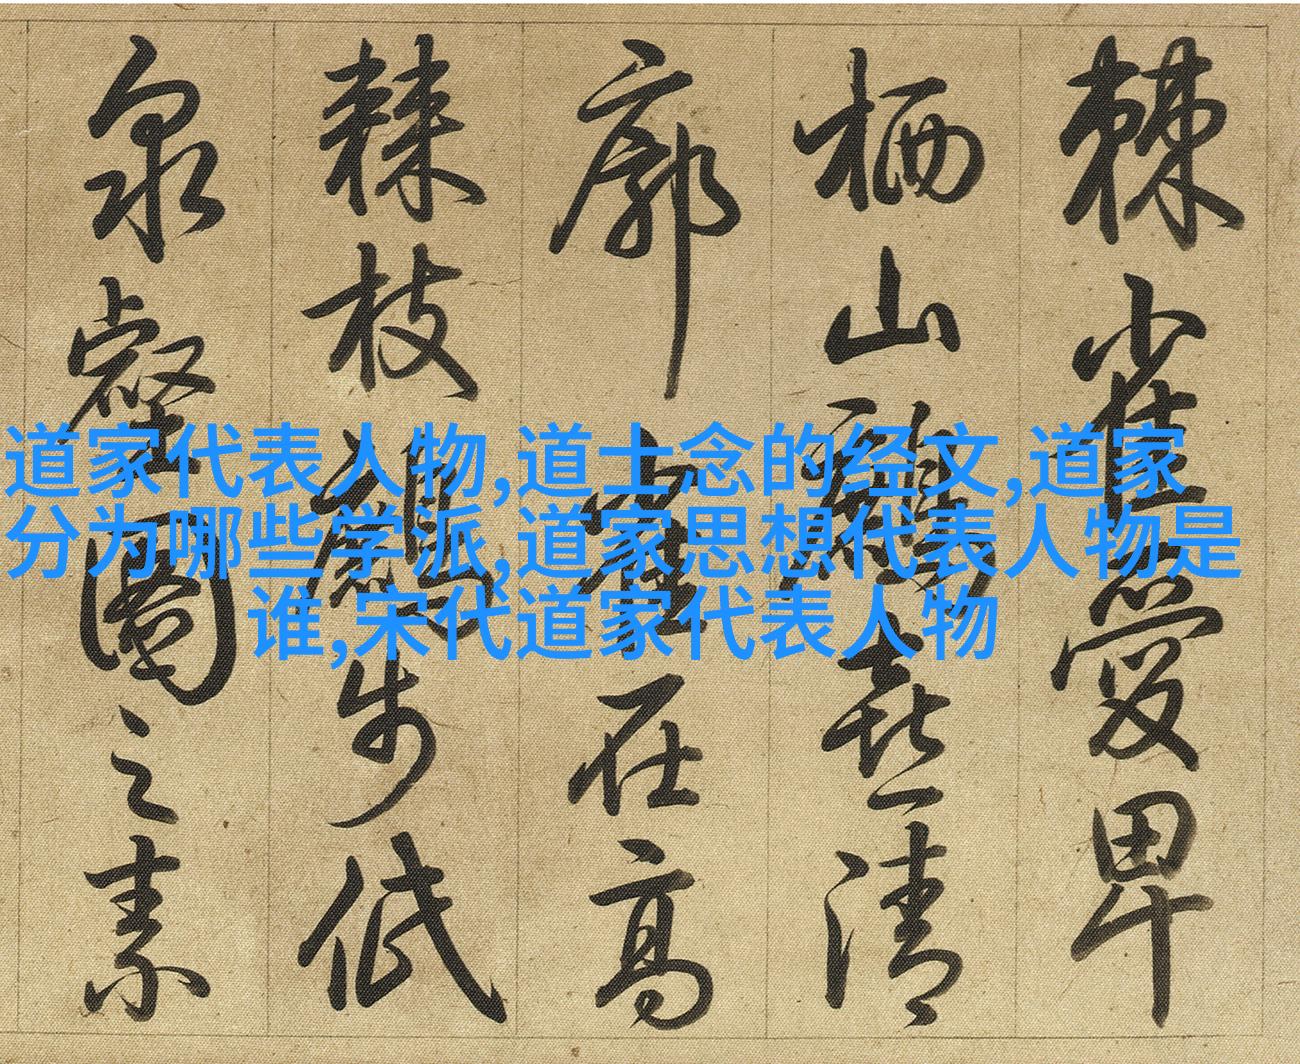 棘雀愛卑
栖山鸐喜清
廓寉在高
棘枝鴳步低
泉壑園之素
道家代表人物,道士念的经文,道家
分为哪些学派,道家思想代表人物是
谁,宋代道家代表人物